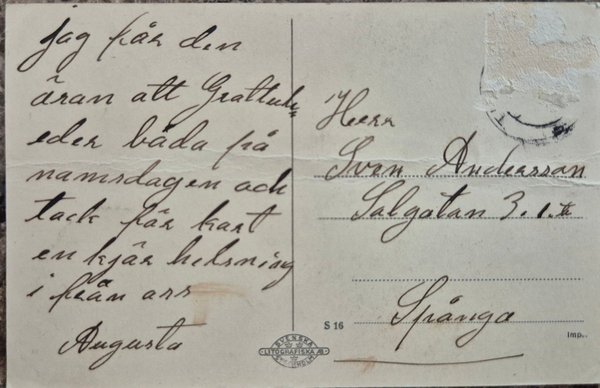 jag får den
äran att Gratulera
eder båda på
namsdagen och
tack får kort
en kjär helsning
i från oss
Augusta
Herr
Sven Andersson
Solgatan 3. 1. tr
Spånga
S 16
SVENSKA
LITOGRAFISKA AB
STOCKHOLM
Imp.